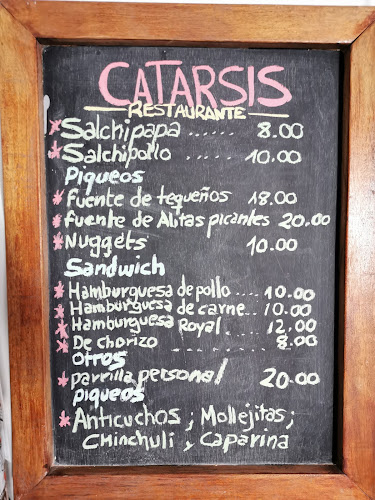 CATARSIS
RESTAURANTE
* Salchipapa ...... 8.00
* Salchipollo ...... 10.00
Piqueos
* Fuente de tequeños 18.00
* fuente de Alitas picantes 20.00
* Nuggets 10.00
Sandwich
* Hamburguesa de pollo .... 10.00
* Hamburguesa de carne .... 10.00
* Hamburguesa Royal .... 12.00
* De chorizo ........ 8.00
otros
* parrilla personal 20.00
piqueos
* Anticuchos ; Mollejitas ;
Chinchuli , Caparina